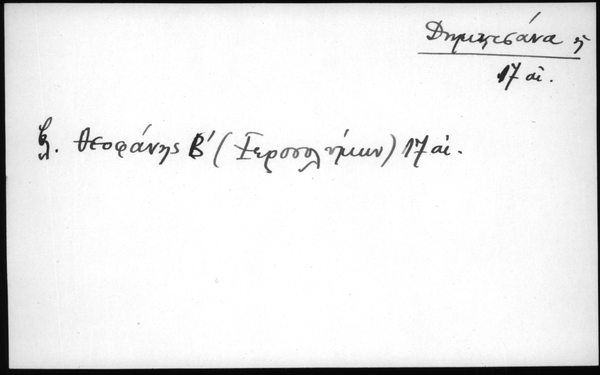 Δημητσάνα ἡ
17 αἰ.
βλ. Θεοφάνης Β' (Ἱεροσολύμων) 17 αἰ.